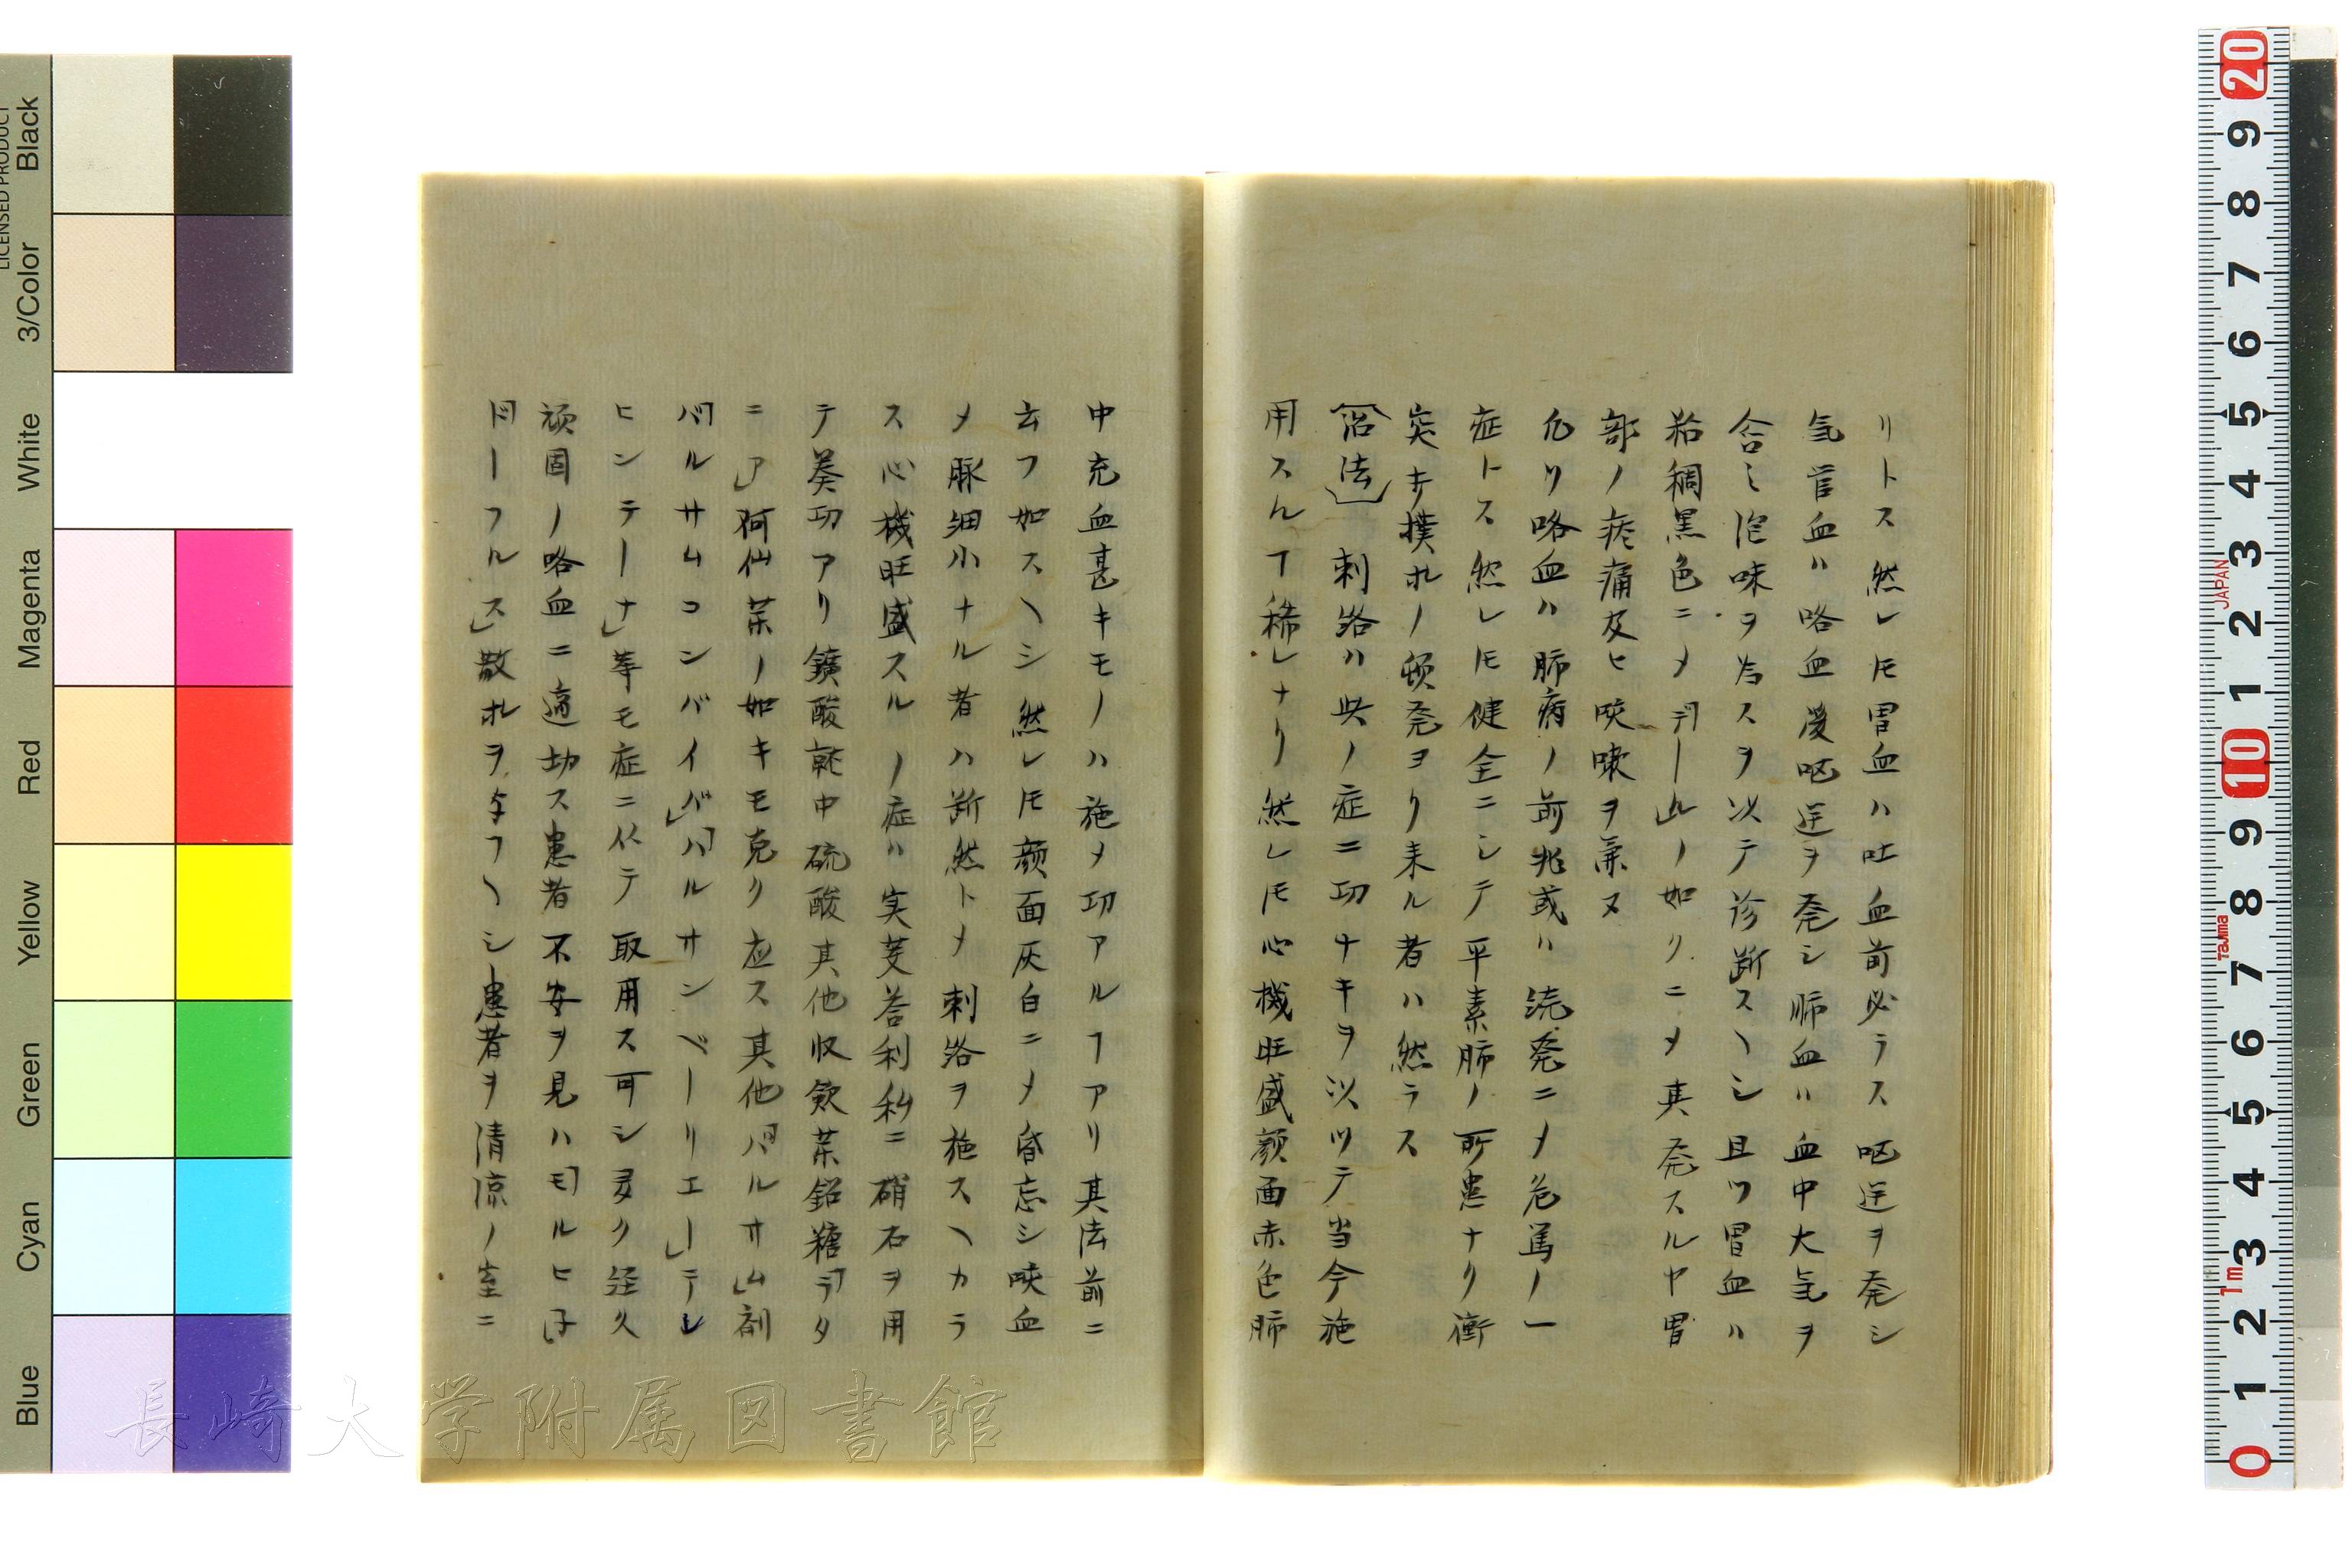 リトス然レ𪜈胃血ハ吐血前必ラス嘔逆ヲ発シ
気官血ハ咯血後嘔逆ヲ発シ肺血ハ血中大気ヲ
含ミ泡味ヲ為スヲ以テ診断スヘシ且ツ胃血ハ
粘稠黒色ニメ「テール」ノ如クニメ其発スルヤ胃
部ノ疼痛及ヒ咳嗽ヲ兼ヌ
凡ソ咯血ハ肺病ノ前兆或ハ流発ニメ危篤ノ一
症トス然レ𪜈健全ニシテ平素肺ノ所患ナク衝
突キ撲ホノ頓発ヨリ来ル者ハ然ラス
治法 刺絡ハ此ノ症ニ功ナキヲ以ツテ当今施
用スルヿ稀レナリ然レ𪜈心機旺盛顔面赤色肺
中充血甚キモノハ施メ功アルヿアリ其法前ニ
云フ如スヘシ然レ𪜈顔面灰白ニメ昏忘シ咲血
メ脈細小ナル者ハ断然トメ刺絡ヲ施スヘカラ
ス心機旺盛スルノ症ハ実芰荅利私ニ硝石ヲ用
テ葵功アリ鑛酸乾中硫酸其他収歛薬鉛糖「ラタ
ニア」阿仙薬ノ如キモ克ク应ス其他「バルサム」剤
「バルサムコンバイバ」「バルサンベーリエー」テレ
ヒンテーナ」等モ症ニ仫テ取用ス可シ要ク経久
頑固ノ咯血ニ適切ス患者不安ヲ見ハ「モルヒ子
「ドーフルス」散ホヲ与フヘシ患者ヲ清涼ノ室ニ
長崎大学附属図書館
LICENSED PRODUCT
Black
3/Color
White
Magenta
Red
Yellow
Green
Cyan
Blue
20
9
8
7
6
5
4
3
JAPAN
2
1
10
9
8
Tajima
7
6
5
4
3
1m
2
1
0